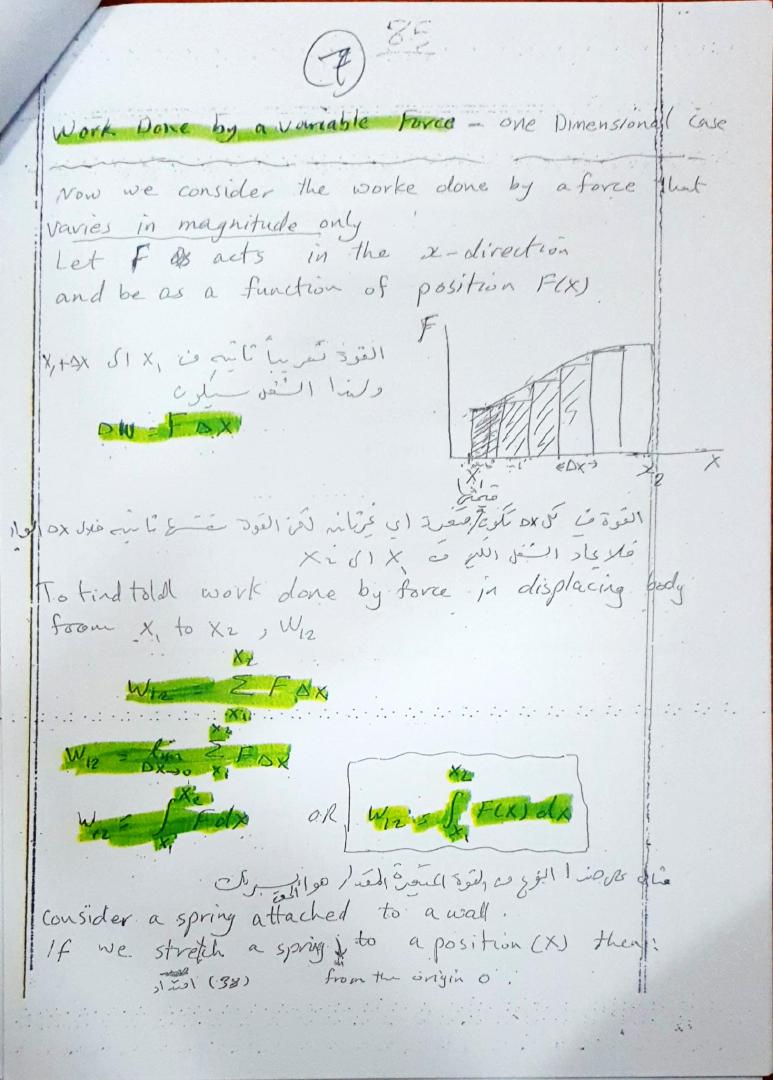 85
7
Work Done by a Variable Force - one Dimensional Case
Now we consider the worke done by a force that
varies in magnitude only
Let F acts in the x-direction
and be as a function of position F(X)
القوة تقريباً ثابته من X₁ الى X₁+ΔX
ولهذا الشغل سيكون
ΔW = F ΔX
F
X₁
←ΔX→
X₂
X
القوة في كل ΔX تكون متغيرة اي غير ثابته لكن القوة ثابته خلال ΔX
فلايجاد الشغل الكلي من X₁ الى X₂
To find totdl work done by force in displacing body
froom X₁ to X₂ , W₁₂
X₂
W₁₂ = Σ F ΔX
X₁
X₂
W₁₂ = lim Σ F ΔX
ΔX→0 X₁
X₂
W₁₂ = ∫ F dX
X₁
OR
X₂
W₁₂ = ∫ F(X) dX
X₁
مثال على هذا النوع من القوة المتغيرة المقدار هو السبرنك
Consider a spring attached to a wall .
If we stretch a spring to a position (X) then :
(38) امتداد
from the origin 0 .